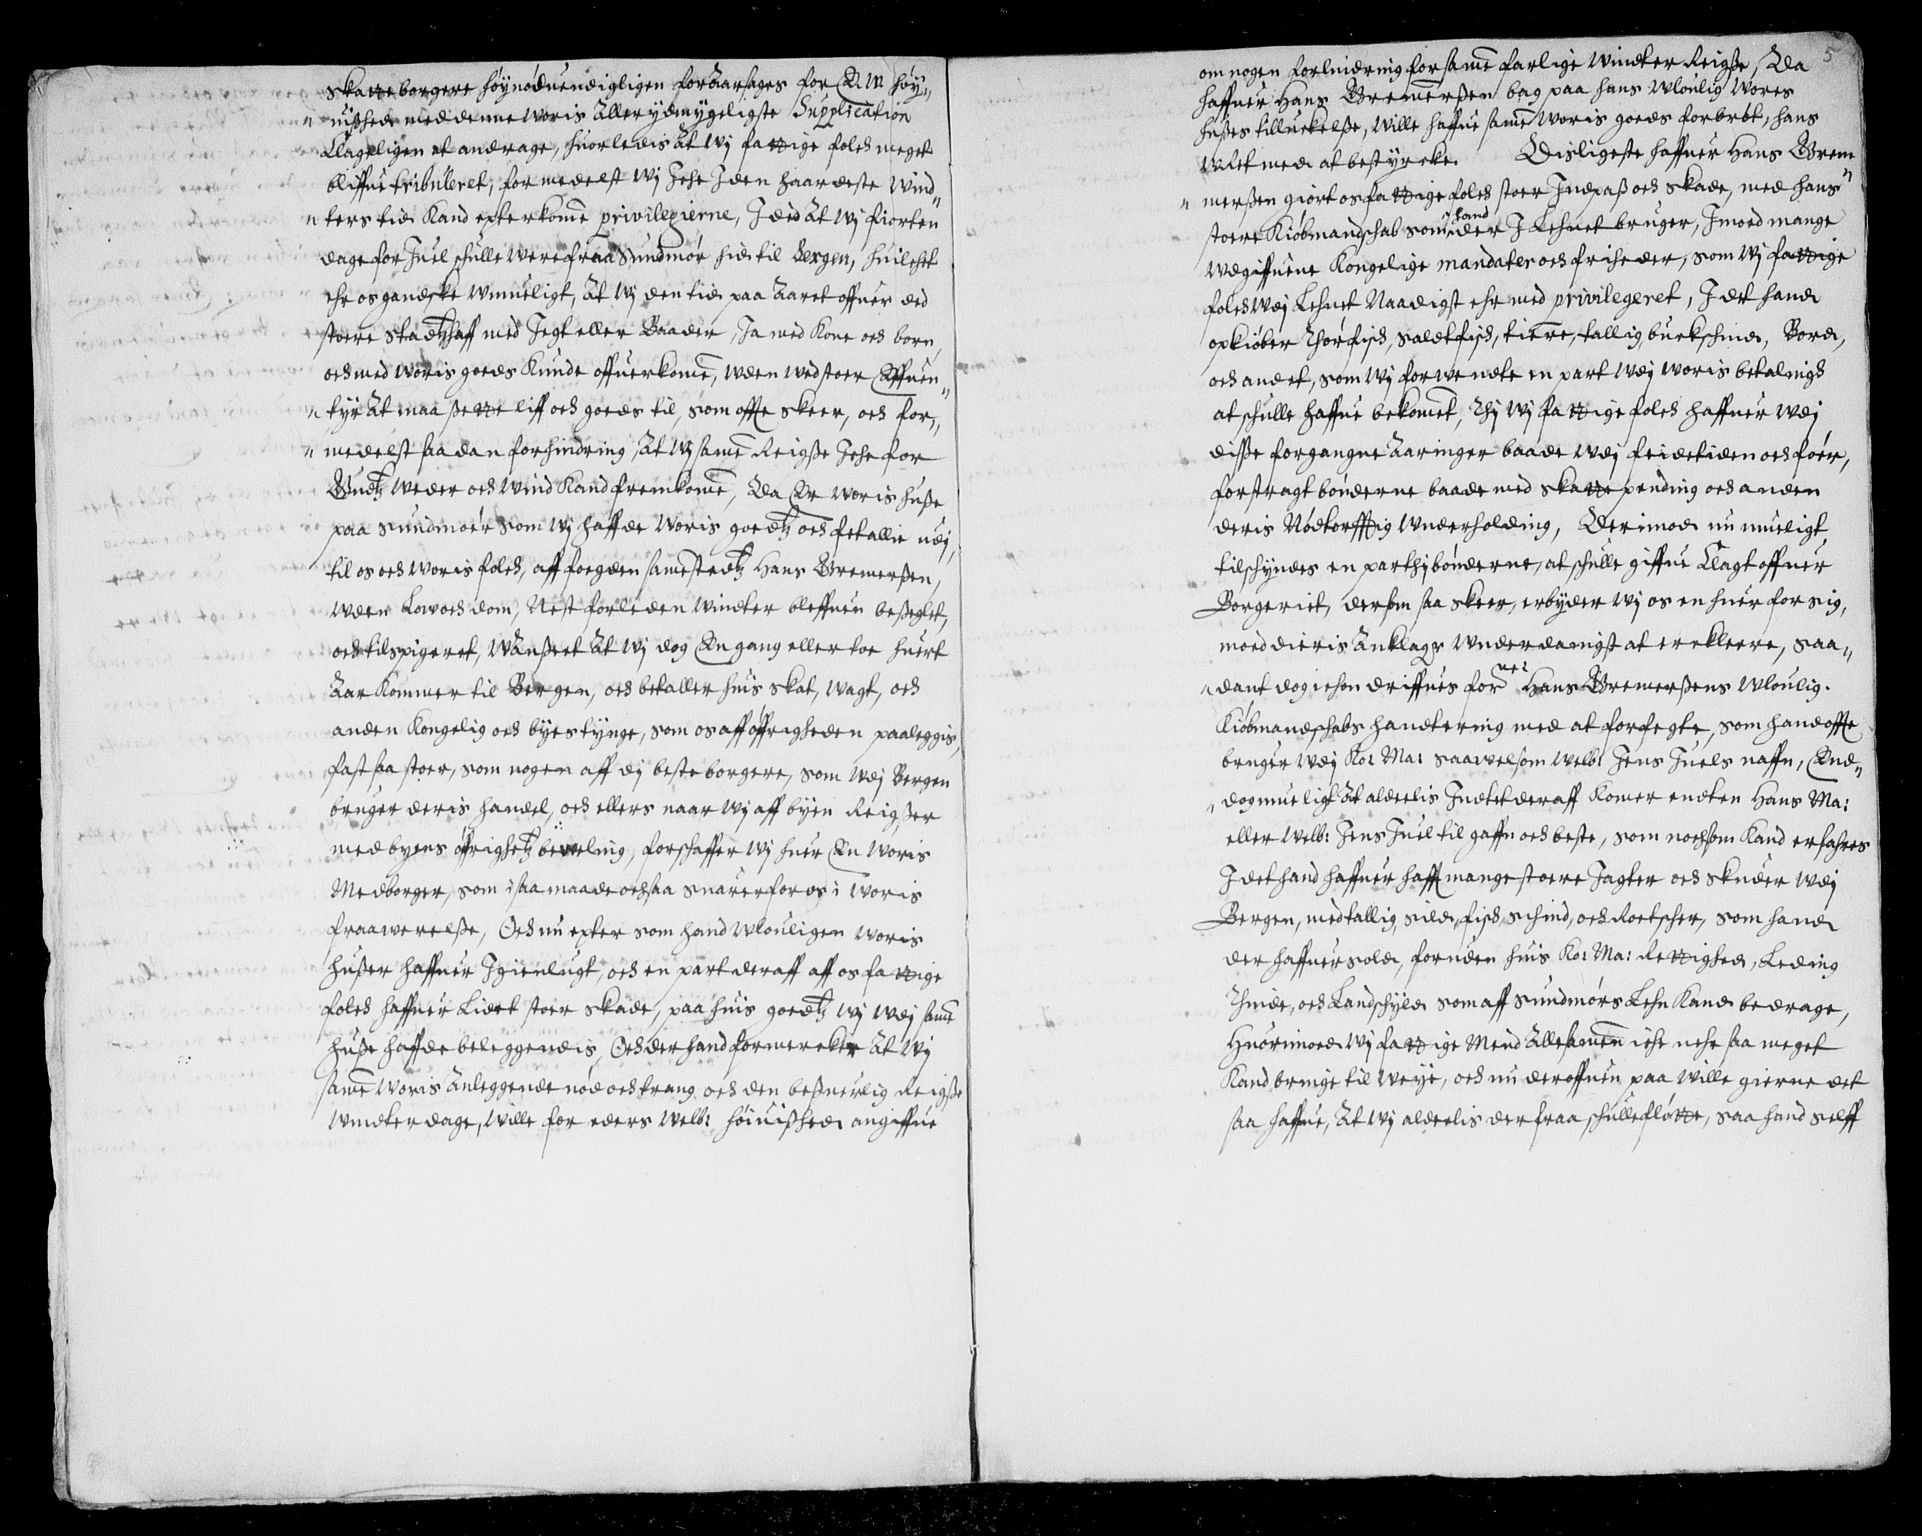 skatte borgere höynödvendigligen foraarsages for E. W. höy„
„ uished med denne woris Aller ydmygeligste Supplication
Klageligen at andrage, huorledis At wj fattige folch meget
bliffue tribuleret, formedelst wj Iche I den haardeste wind„
„ ters tid Kand epterkome privilegierne, I ded At wj fiorten
dage for Juel schulle were fraa Sundmör hid til Bergen, huilchet
ehr os gandske wmueligt, At wj den tid paa Aaret offuer ded
stoere Stadtzhaff med Jegt eller Baader, Ja med Kone och born,
och med woris goeds Kunde offuerkome, uden wed stoer Effuen„
„ tyr At maa sette liff och goeds til, som offte skeer, och for„
„ medelst saadan forhindring, At wj same Reigsse Iche for
Gudtz weder och wind Kand fremkome, Da Er woris husse
paa Sundmoer som wj haffde woris goedtz och fetallie udj,
til os och woris folch, aff foegden samestedtz Hans Bremerssen,
uden Low och dom, Nest forleden windter bleffuen besseglet,
och tilspigeret, wAnsseet At wj dog En gang eller toe huert
Aar Kommer til Bergen, och betaller huis skat, wagt, och
anden Kongelig och byes tynge, som os aff öffrigheden paaleggis,
fast saa stoer, som nogen aff dj beste borgere, som udj Bergen
bruger deris handel, och ellers naar wj aff byen Reigsser
med byens öffrighetz bewelning, forschaffer wj huer En woris
Medborger, som i saa maade ochsaa snarer for os i woris
fraawerelsse, Och nu epter som hand wlouligen woris
husser haffuer Igienlugt, och en part deraff aff os fattige
folch haffuer Lidet stoer skade, paa huis goedtz wj udj same
husse haffde beleggendis, Och der hand formercker At wj
same woris Anleggende nöd och trang och den bessuerlig Reigsse
windter dage, wille for eders welb: höiuished angiffue
5
om nogen forlindring for same farlige windter Reigsse, Da
haffuer Hans Bremerssen bag paa hans wloulig wores
husses tilluckelsse, wille haffue same woris goeds forbröt, hans
wret med at bestyrcke. Disligeste haffuer Hans Brem„
„ merssen giort os fattige folch stoer Indpass och skade, med hans
stoere Kiöbmandschab som hand der I Lehnet bruger, Imoed mange
wdgiffuene Kongelige mandater och friheder, som wj fattige
folch udj Lehnet Naadigst ehr med privilegeret, I det hand
opkiöber Thörfisch, saldtfisch, tiere, tallig buckschind, Bord,
och andet, som wj forwendte en part udj woris betalnigh
at schulle haffue bekomet, Thj wj fattige folch haffuer udj
disse forgangne Aaringer baade udj feidetiden och föer,
forstragt bönderne baade med skatte pending och anden
deris Nödtorfftig wnderholding, Derimod nu mueligt
tilschyndes en parthj bönderne, at schulle giffue Klagt offuer
Borgeriet, dersom saa skeer, erbyder wj os en huer for sig,
moed dieris Anklager wnderdamigst at erekleere, saa„
„ dant dog ichon driffues for nei Hans Bremerssens wloulig.
Kiöbmandschabs handtering med at forfegte, som hand offte
bruger udj Ko: Ma: saauelsom welb: Jens Juels naffn, End„
„ dog mueligt At aldeelis Indtet deraff komer endten Hans Ma:
eller welb: Jens Juel til gaffn och beste, som nochsom Kand erfahres
I det hand haffuer hafft mange stoere Jagter och skuder udj
Bergen, med tallig, sild, fisch, schind, och Roetscher, som hand
der haffuer sold, foruden huis Ko: Ma: Rettighed, Leding
Thinde, och Landschyld som aff Sundmörs Lehn Kand bedrage,
Huorimoed wj fattige Mend Allesamen iche nehr saa meget
Kand bringe til weye, och nu deroffuen paa wille gierne det
saa haffue, At wj aldeelis der fraa schulle flötte, saa hand selff